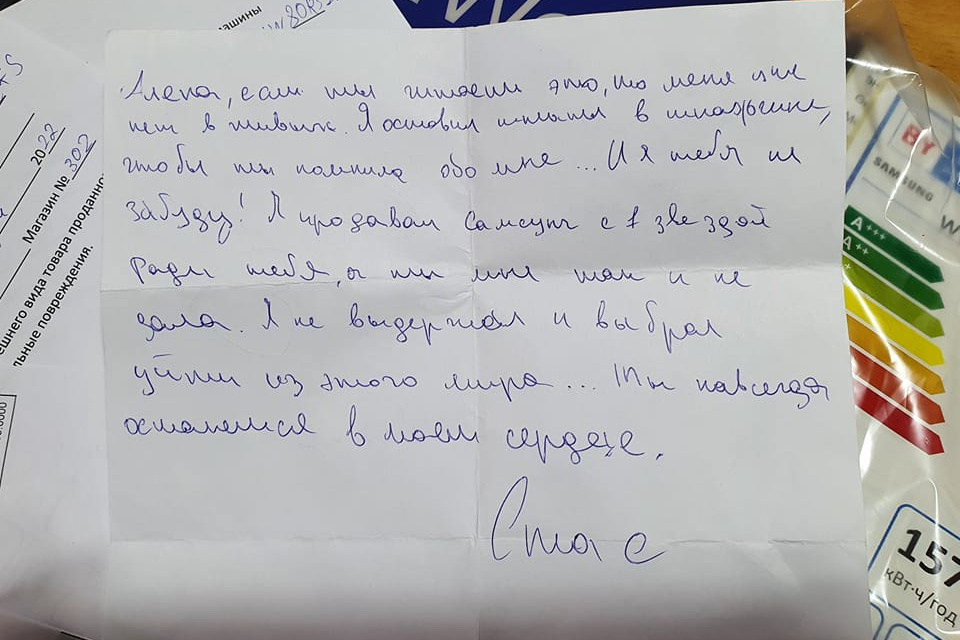 Алена, если ты читаешь это, то меня уже
нет в живых. Я оставил в
чтобы ты помнила обо мне... И я тебя не
забуду! Я продавал Самсунг с 1 звездой
ради тебя, а ты мне так и не
дала. Я не выдержал и выбрал
уйти из этого мира... Ты навсегда
останешься в моем сердце.
Стас
ашины
80R5
2022
Магазин № 302
ешнего вида товара проданно
льные повреждения.
BY
SAMSUNG
W
A+++
A++
157
кВт·ч/год